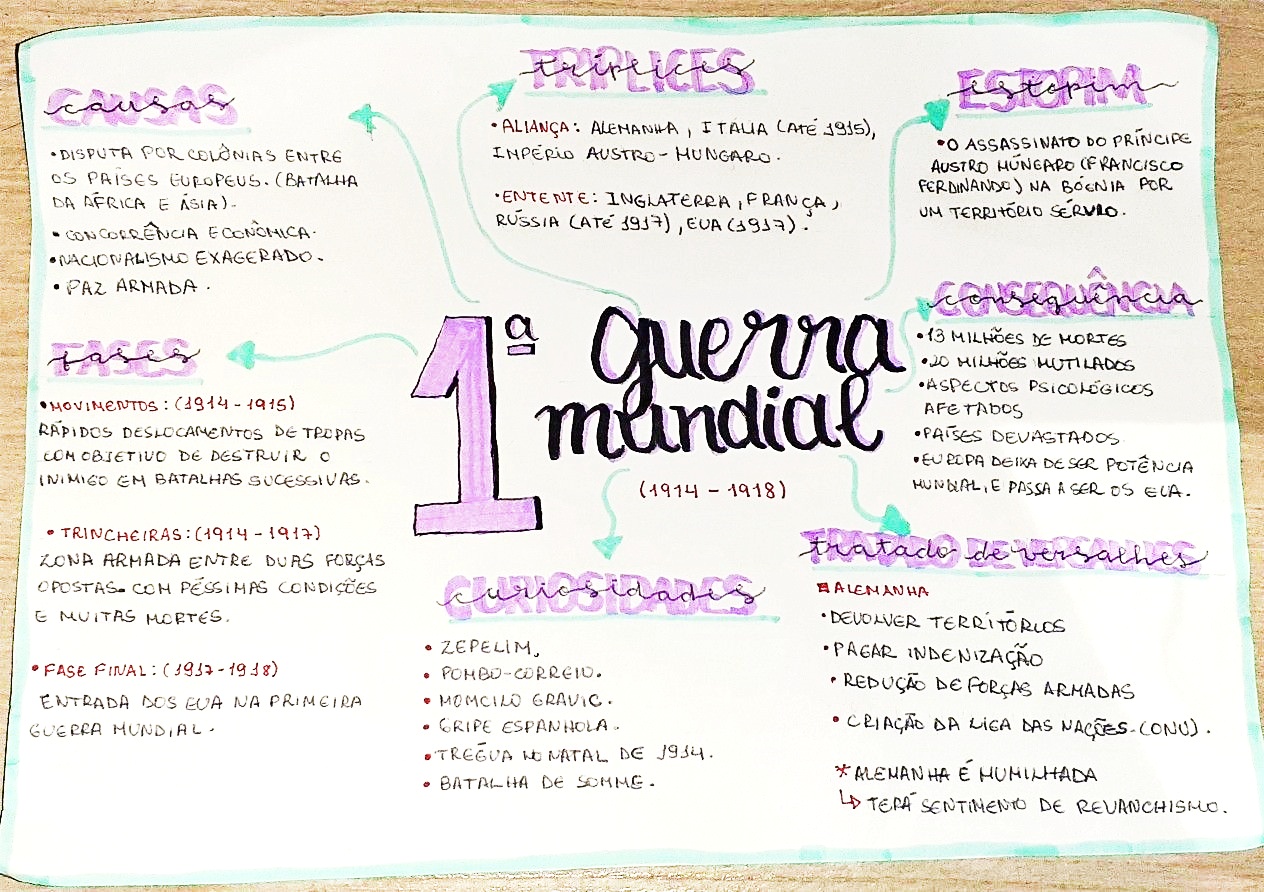 1ª guerra
mundial
(1914 - 1918)
causas
•DISPUTA POR COLÔNIAS ENTRE
OS PAÍSES EUROPEUS. (BATALHA
DA ÁFRICA E ÁSIA).
•CONCORRÊNCIA ECONÔMICA.
•NACIONALISMO EXAGERADO.
• PAZ ARMADA.
TRÍPLICES
•ALIANÇA: ALEMANHA, ITÁLIA (ATÉ 1915),
IMPÉRIO AUSTRO-HUNGARO.
•ENTENTE: INGLATERRA, FRANÇA,
RÚSSIA (ATÉ 1917), EUA (1917).
ESTOPIM
•O ASSASSINATO DO PRÍNCIPE
AUSTRO HÚNGARO (FRANCISCO
FERDINANDO) NA BÓSNIA POR
UM TERRITÓRIO SÉRVIO.
CONSEQUÊNCIA
•13 MILHÕES DE MORTES
•20 MILHÕES MUTILADOS
•ASPECTOS PSICOLÓGICOS
AFETADOS
•PAÍSES DEVASTADOS
•EUROPA DEIXA DE SER POTÊNCIA
MUNDIAL, E PASSA A SER OS EUA.
fases
•MOVIMENTOS: (1914-1915)
RÁPIDOS DESLOCAMENTOS DE TROPAS
COM OBJETIVO DE DESTRUIR O
INIMIGO EM BATALHAS SUCESSIVAS.
• TRINCHEIRAS: (1914-1917)
ZONA ARMADA ENTRE DUAS FORÇAS
OPOSTAS. COM PÉSSIMAS CONDIÇÕES
E MUITAS MORTES.
•FASE FINAL: (1917-1918)
ENTRADA DOS EUA NA PRIMEIRA
GUERRA MUNDIAL.
CURIOSIDADES
• ZEPELIM.
• POMBO-CORREIO.
• MOMCILO GRAVIC.
• GRIPE ESPANHOLA.
•TREGUA NO NATAL DE 1914.
• BATALHA DE SOMME.
tratado de versalhes
ALEMANHA
•DEVOLVER TERRITÓRIOS
•PAGAR INDENIZAÇÃO
•REDUÇÃO DE FORÇAS ARMADAS
• CRIAÇÃO DA LIGA DAS NAÇÕES-(ONU).
*ALEMANHA É HUMILHADA
↳ TERÁ SENTIMENTO DE REVANCHISMO.